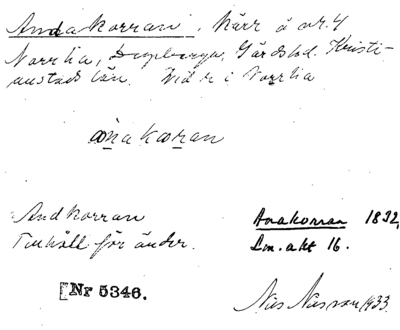 Andakorran. Kärr å nr. 4
Norrlia, Degeberga, Gärds hd. Kristi-
anstads län. Vid r i Norrlia
anakoran
Andkorran
Tillhåll för änder.
Anakorran 1832,
Lm. akt 16.
[Nr 5346.
Nils Nilsson 1933.